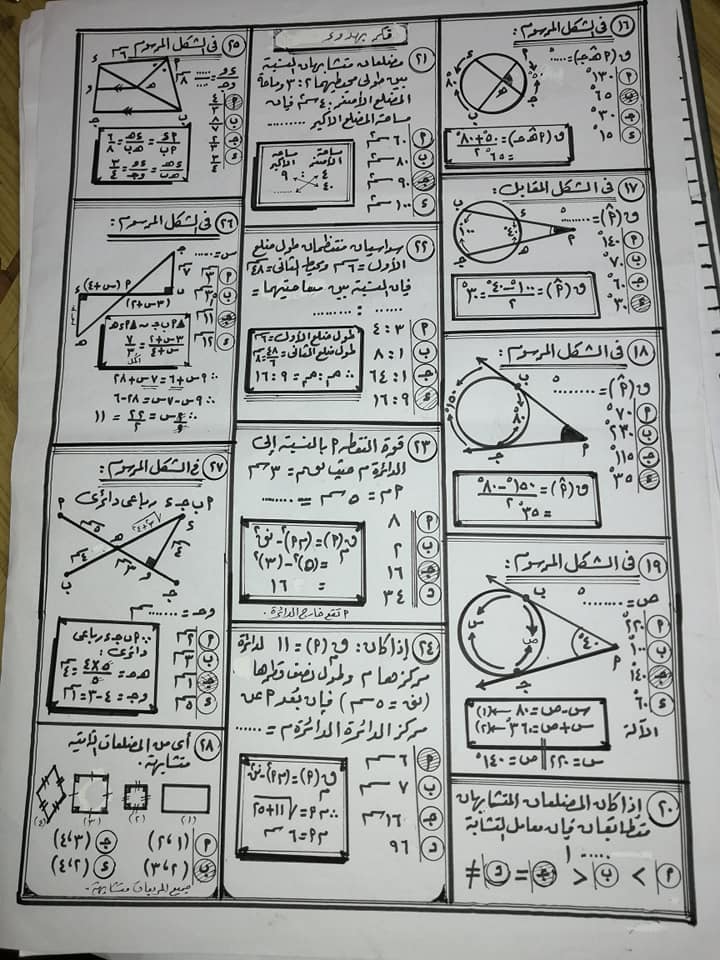 ١٦ في الشكل المرسوم:
ق(أ هـ جـ) = ..... °
أ ١٣٠°
ب ٦٥°
جـ ٣٠°
د ١٥°
ق(أ هـ جـ) = (٥٠ + ٨٠)/٢
= ٦٥°
١٧ في الشكل المقابل:
ق(أ) = ........ °
أ ١٤٠°
ب ٧٠°
جـ ٦٠°
د ٣٠°
ق(أ) = (١٠٠ - ٤٠)/٢ = ٣٠°
١٨ في الشكل المرسوم:
ق(أ) = ......... °
أ ٧٠°
ب ٢٣٠°
جـ ١١٥°
د ٣٥°
ق(أ) = (١٥٠ - ٨٠)/٢
= ٣٥°
١٩ في الشكل المرسوم:
ص = ......... °
أ ٢٢٠°
ب ١٠٠°
جـ ١٤٠°
د ٦٠°
س - ص = ٨٠ → (١)
س + ص = ٣٦٠ → (٢)
الآلة
س = ٢٢٠ ص = ١٤٠°
٢٠ إذا كان المضلعان المتشابهان
متطابقان فإن معامل التشابة
..... ١
أ > ب < جـ = د ≠
فكر بهدوء
٢١ مضلعان متشابهان النسبة
بين طولي محيطيهما ٢ : ٣ ومساحة
المضلع الأصغر ٤٠ سم٢ فإن
مساحة المضلع الأكبر .........
أ ٦٠ سم٢
ب ٨٠ سم٢
جـ ٩٠ سم٢
د ١٠٠ سم٢
مساحة الأصغر مساحة الأكبر
٤ ٩
٤٠ .....
٢٢ سداسيان منتظمان طول ضلع
الأول = ٦ سم ومحيط الثاني = ٤٨ سم
فإن النسبة بين مساحتيهما =
...... : ......
أ ٣ : ٤
ب ١ : ٨
جـ ١ : ٦٤
د ٩ : ١٦
طول ضلع الأول = ٦ سم
طول ضلع الثاني = ٤٨/٦ = ٨ سم
∴ م : م = ٩ : ١٦
٢٣ قوة النقطة أ بالنسبة إلى
الدائرة م حيث نق = ٣ سم
أم = ٥ سم = .......
أ ٨
ب ٢
جـ ١٦
د ٣٤
ق(أ) = (أم)٢ - نق٢
= (٥)٢ - (٣)٢
= ١٦
أ تقع خارج الدائرة.
٢٤ إذا كان: ق(أ) = ١١ لدائرة
مركزها م وطول نصف قطرها
(نق = ٥ سم) فإن بعد أ عن
مركز الدائرة الدائرة م = ......
أ ٦ سم
ب ٧ سم
جـ ١٦ سم
د ٩٦
ق(أ) = (أم)٢ - نق٢
∴ أم = √(١١ + ٢٥)
أم = ٦ سم
٢٥ في الشكل المرسوم
ء و / و جـ = .....
أ ٤/٣
ب ٨/٧
جـ
د ٣/٤
أء/أب = ء هـ/هـ ب = ٦/٨
ء هـ/هـ ب = ء و/و جـ = ٣/٤
٢٦ في الشكل المرسوم:
س = .....
أ
ب ٣ سم
جـ ١١ سم
د ١٢ سم
(س+٤)
(٣س+٢)
(٣س+٢)/(س+٤) = ٧/٣
∴ ٩س + ٦ = ٧س + ٢٨
∴ ٩س - ٧س = ٢٨ - ٦
∴ ٢س/٢ = ٢٢/٢ = ١١
٢٧ في الشكل المرسوم:
أ ب جـ ء رباعي دائري
و جـ = ....... سم
أ ٢ سم
ب ٣ سم
جـ ١ سم
د ٥ سم
∴ أ ب جـ ء رباعي
دائري:
هـ جـ = (٤×٥)/٥ = ٤ سم
و جـ = ٤ - ٣ = ١ سم
٢٨ أي من المضلعات الآتية
متشابهة.
(١) (٢) (٣) (٤)
أ (١ ، ٢) جـ (٣ ، ٤)
ب (٢ ، ٣) د (٢ ، ٤)
جميع المربعات متشابهة.